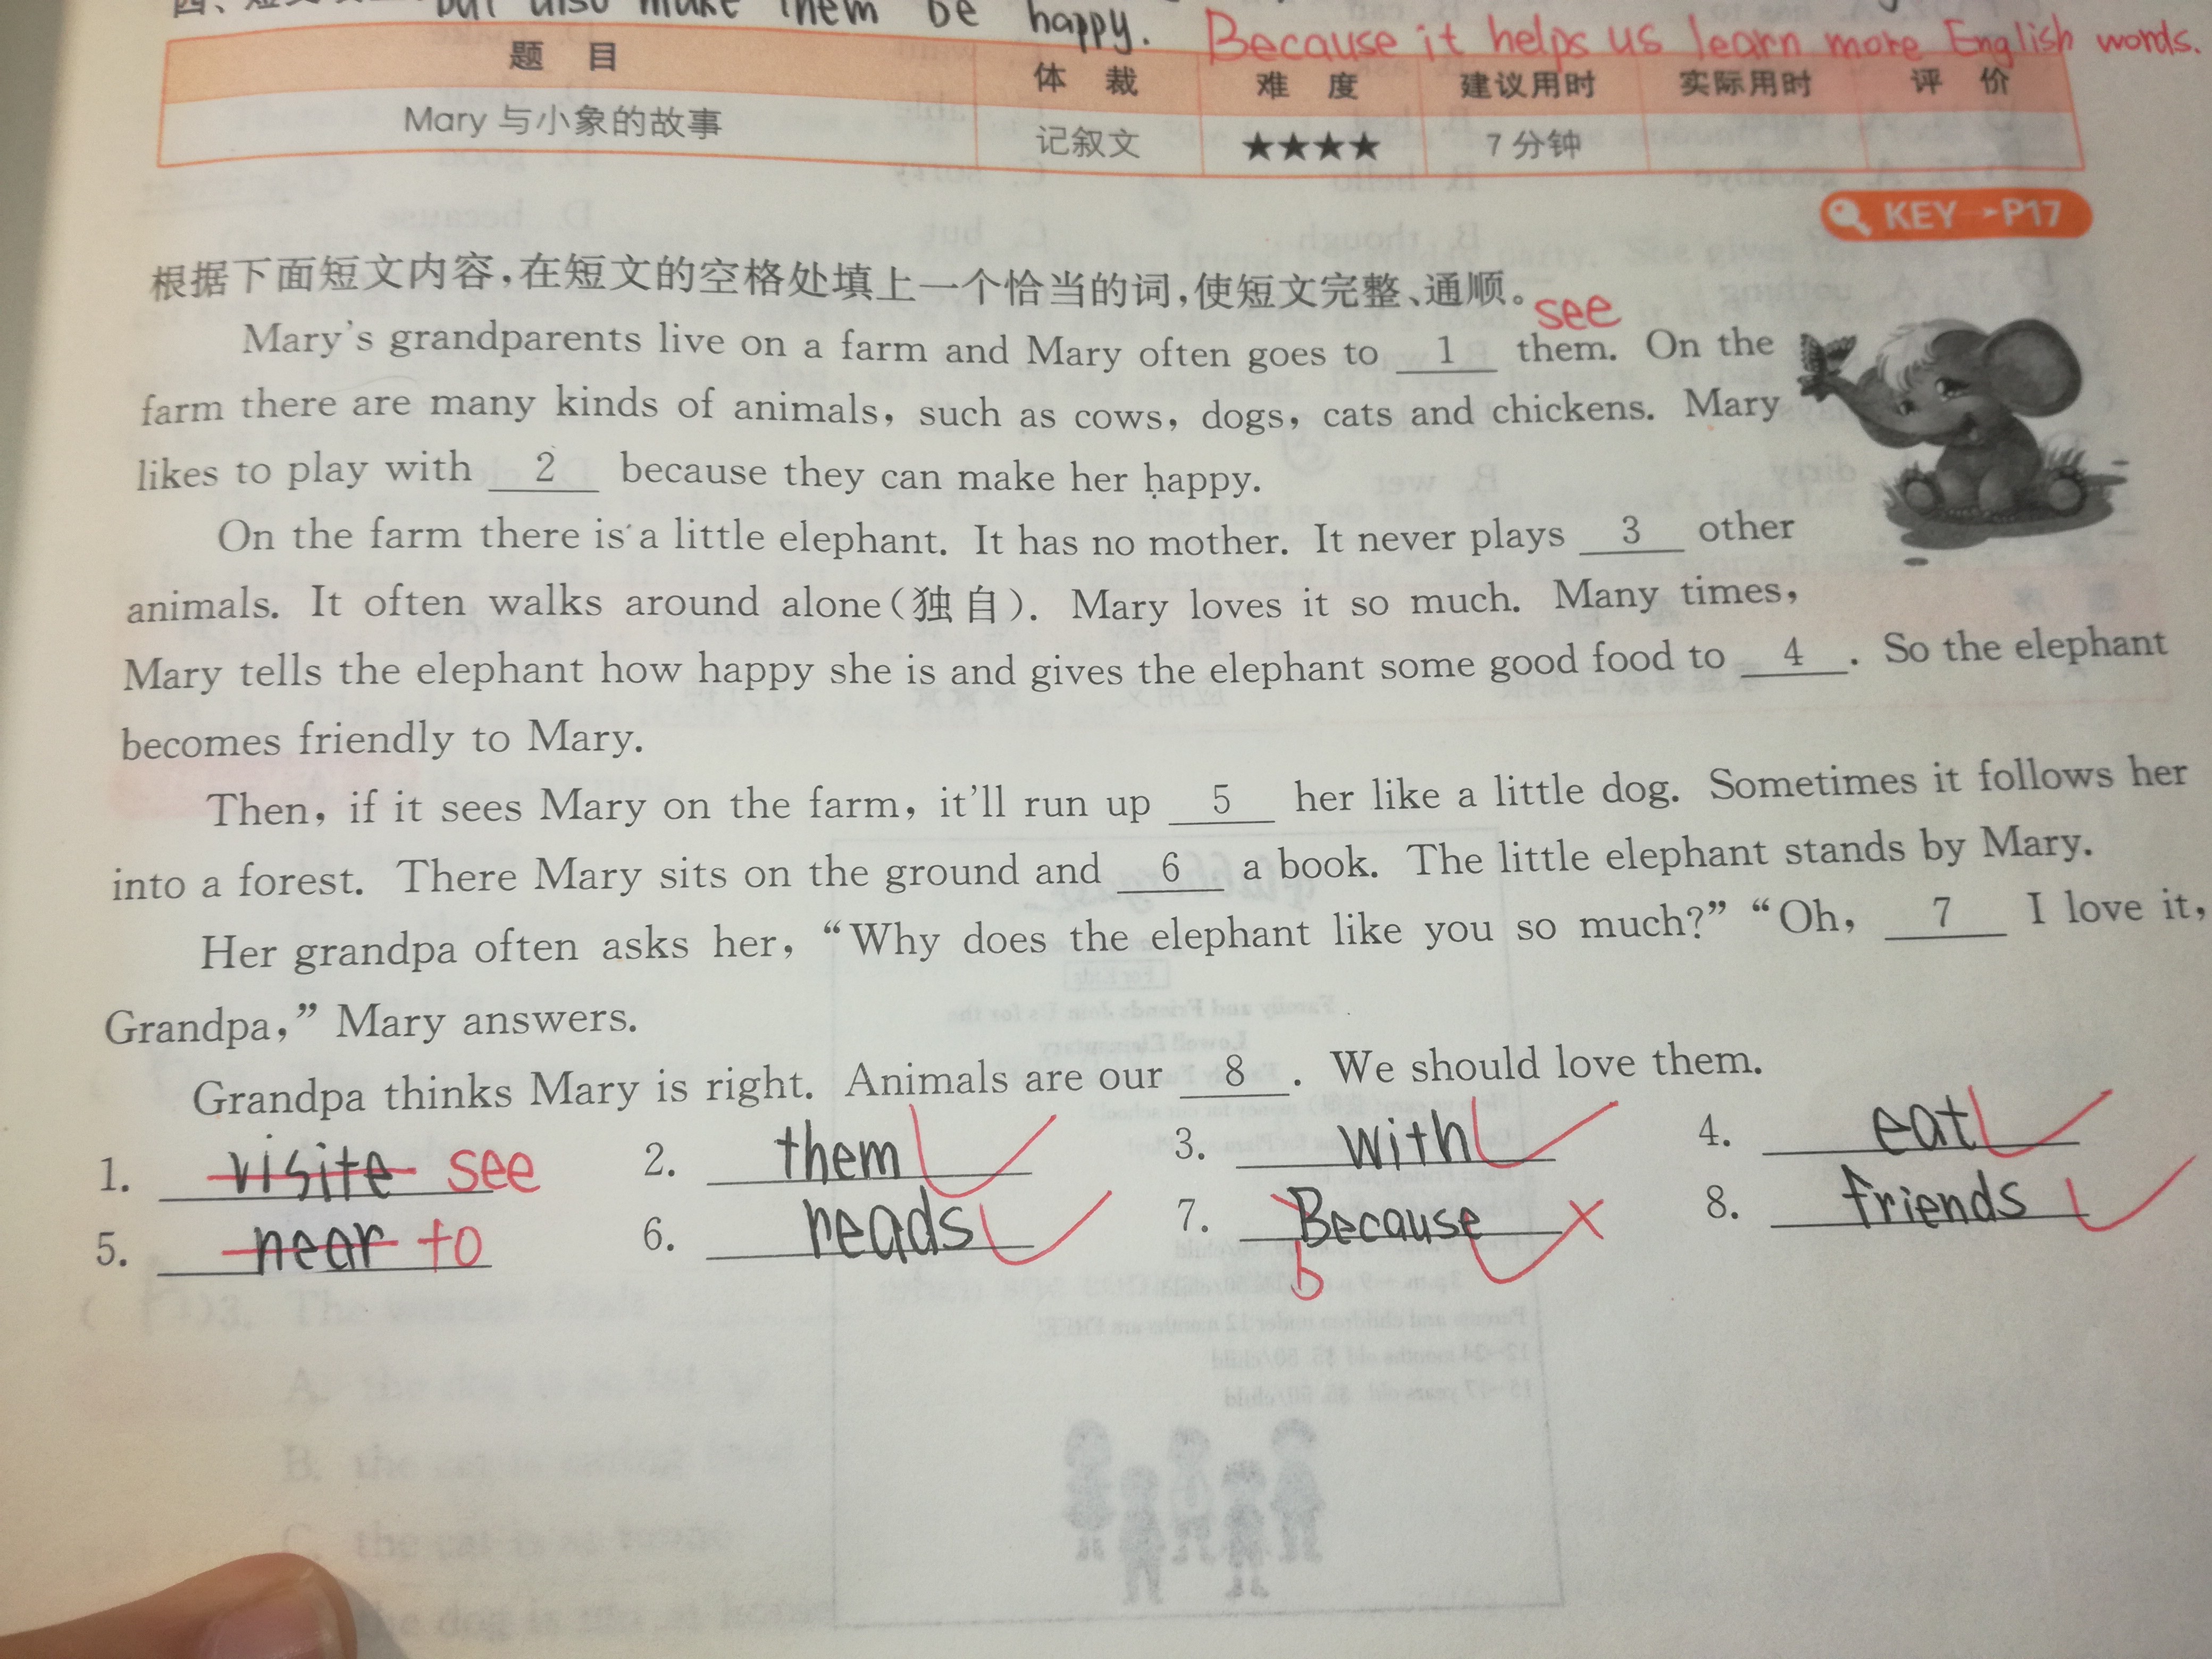 but also make them be happy. Because it helps us learn more English words.
题 目 体 裁 难 度 建议用时 实际用时 评 价
Mary 与小象的故事 记叙文 ★★★★ 7 分钟
KEY→P17
根据下面短文内容,在短文的空格处填上一个恰当的词,使短文完整、通顺。
see
Mary's grandparents live on a farm and Mary often goes to 1 them. On the
farm there are many kinds of animals, such as cows, dogs, cats and chickens. Mary
likes to play with 2 because they can make her happy.
On the farm there is a little elephant. It has no mother. It never plays 3 other
animals. It often walks around alone(独自). Mary loves it so much. Many times,
Mary tells the elephant how happy she is and gives the elephant some good food to 4 . So the elephant
becomes friendly to Mary.
Then, if it sees Mary on the farm, it'll run up 5 her like a little dog. Sometimes it follows her
into a forest. There Mary sits on the ground and 6 a book. The little elephant stands by Mary.
Her grandpa often asks her, “Why does the elephant like you so much?” “Oh, 7 I love it,
Grandpa,” Mary answers.
Grandpa thinks Mary is right. Animals are our 8 . We should love them.
1. visite see 2. them 3. with 4. eat
5. near to 6. reads 7. Because 8. friends
b